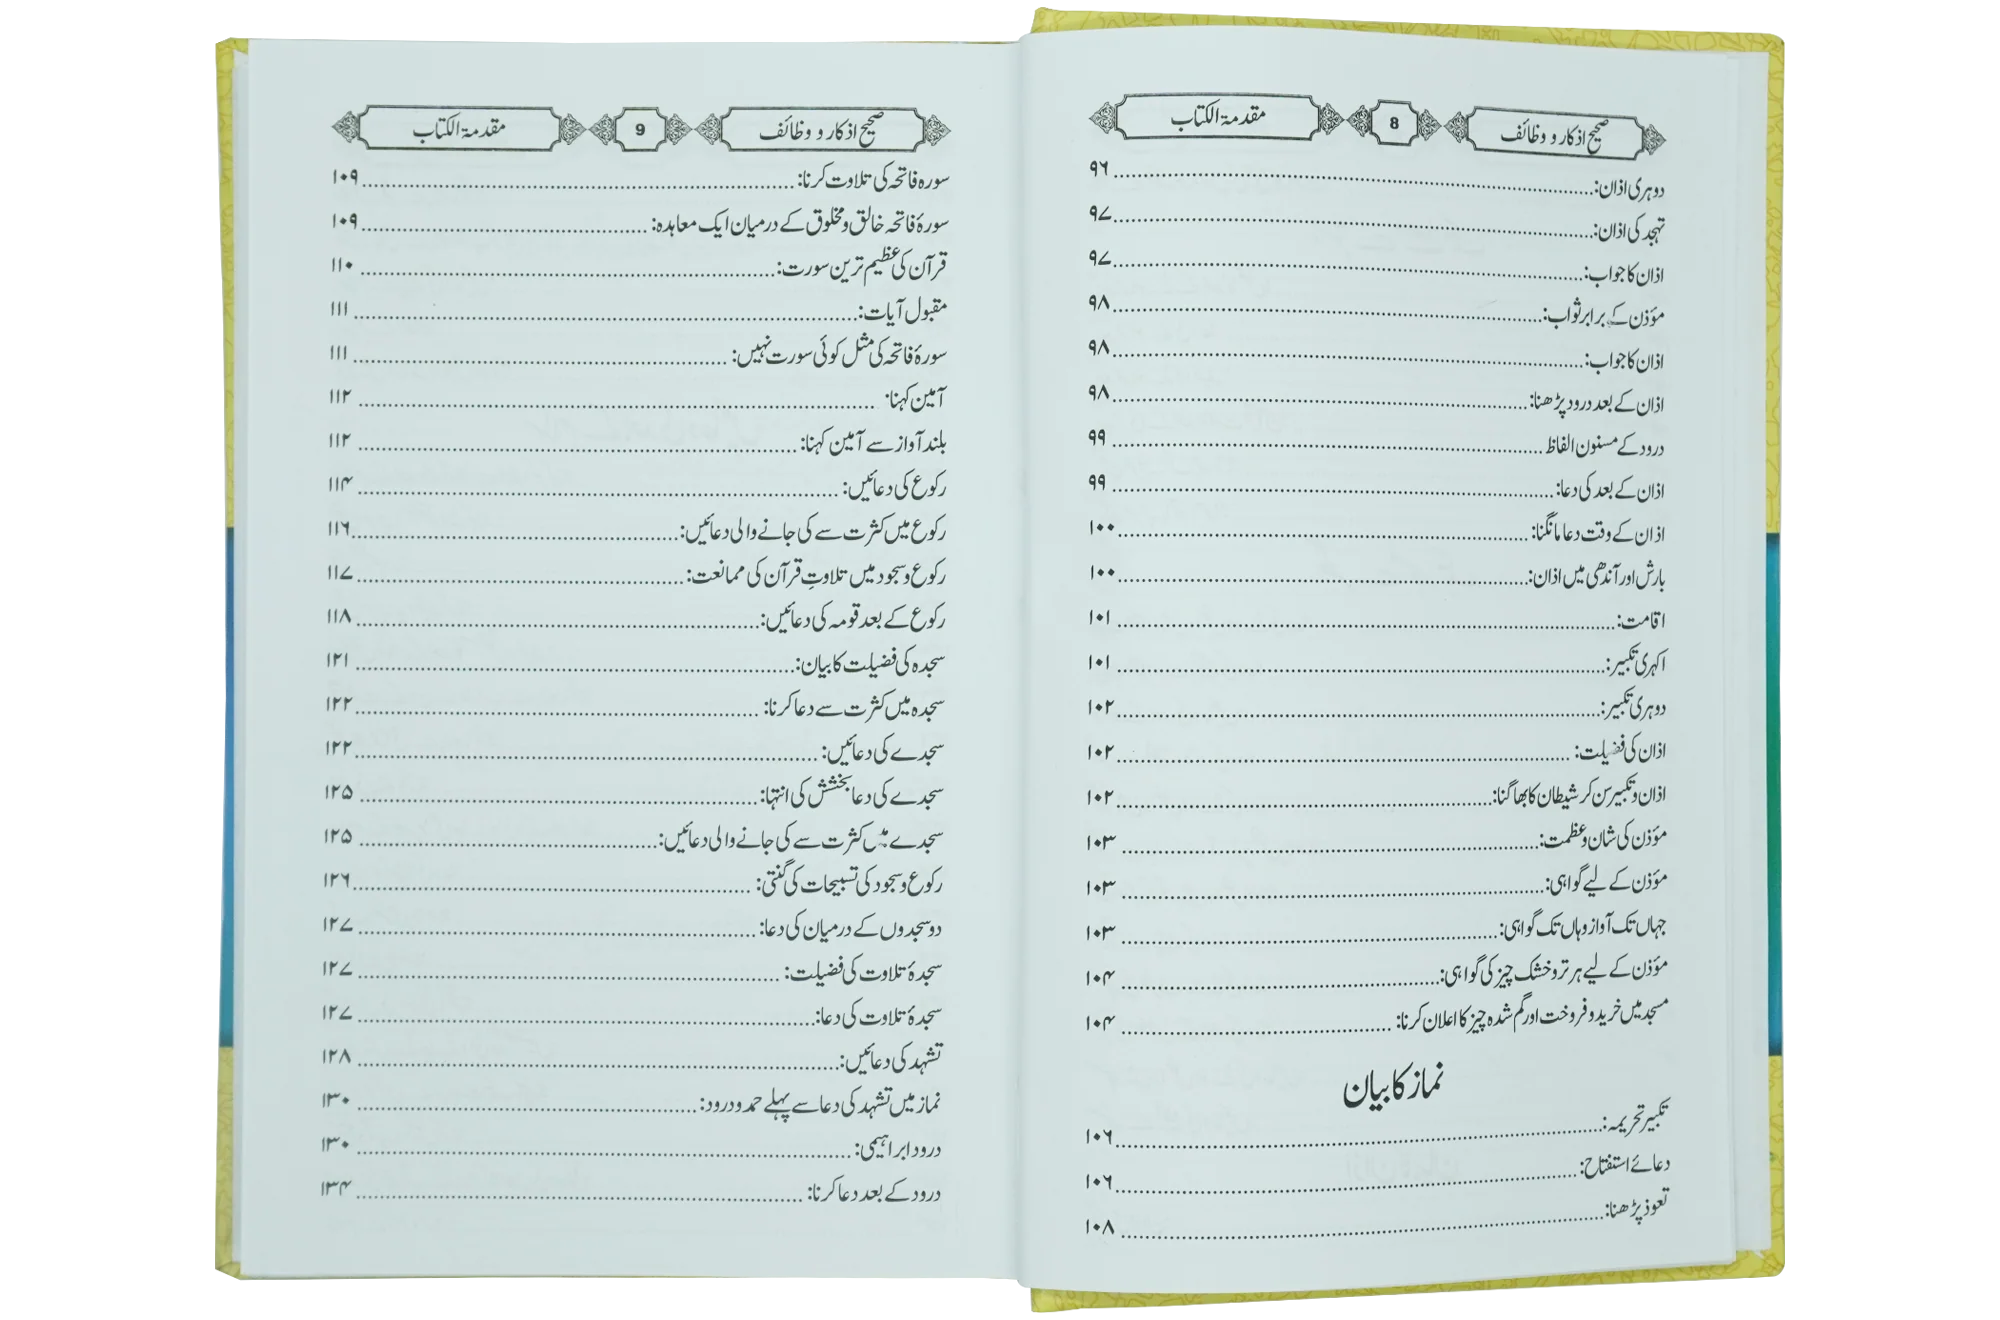 صحیح اذکار و وظائف 8 مقدمۃ الکتاب
دوہری اذان: ۹۶
تہجد کی اذان: ۹۷
اذان کا جواب: ۹۷
مؤذن کے برابر ثواب: ۹۸
اذان کا جواب: ۹۸
اذان کے بعد درود پڑھنا: ۹۸
درود کے مسنون الفاظ ۹۹
اذان کے بعد کی دعا: ۹۹
اذان کے وقت دعا مانگنا: ۱۰۰
بارش اور آندھی میں اذان: ۱۰۰
اقامت: ۱۰۱
اکہری تکبیر: ۱۰۱
دوہری تکبیر: ۱۰۲
اذان کی فضیلت: ۱۰۲
اذان و تکبیر سن کر شیطان کا بھاگنا: ۱۰۲
مؤذن کی شان و عظمت: ۱۰۳
مؤذن کے لیے گواہی: ۱۰۳
جہاں تک آواز وہاں تک گواہی: ۱۰۳
مؤذن کے لیے ہر تر و خشک چیز کی گواہی: ۱۰۴
مسجد میں خرید و فروخت اور گم شدہ چیز کا اعلان کرنا: ۱۰۴
نماز کا بیان
تکبیر تحریمہ: ۱۰۶
دعائے استفتاح: ۱۰۶
تعوذ پڑھنا: ۱۰۸
صحیح اذکار و وظائف 9 مقدمۃ الکتاب
سورہ فاتحہ کی تلاوت کرنا: ۱۰۹
سورۂ فاتحہ خالق و مخلوق کے درمیان ایک معاہدہ: ۱۰۹
قرآن کی عظیم ترین سورت: ۱۱۰
مقبول آیات: ۱۱۱
سورۂ فاتحہ کی مثل کوئی سورت نہیں: ۱۱۱
آمین کہنا: ۱۱۲
بلند آواز سے آمین کہنا: ۱۱۲
رکوع کی دعائیں: ۱۱۴
رکوع میں کثرت سے کی جانے والی دعائیں: ۱۱۶
رکوع و سجود میں تلاوتِ قرآن کی ممانعت: ۱۱۷
رکوع کے بعد قومہ کی دعائیں: ۱۱۸
سجدہ کی فضیلت کا بیان: ۱۲۱
سجدہ میں کثرت سے دعا کرنا: ۱۲۲
سجدے کی دعائیں: ۱۲۲
سجدے کی دعا بخشش کی انتہا: ۱۲۵
سجدے میں کثرت سے کی جانے والی دعائیں: ۱۲۵
رکوع و سجود کی تسبیحات کی گنتی: ۱۲۶
دو سجدوں کے درمیان کی دعا: ۱۲۷
سجدۂ تلاوت کی فضیلت: ۱۲۷
سجدۂ تلاوت کی دعا: ۱۲۷
تشہد کی دعائیں: ۱۲۸
نماز میں تشہد کی دعا سے پہلے حمد و درود: ۱۳۰
درود ابراہیمی: ۱۳۰
درود کے بعد دعا کرنا: ۱۳۴